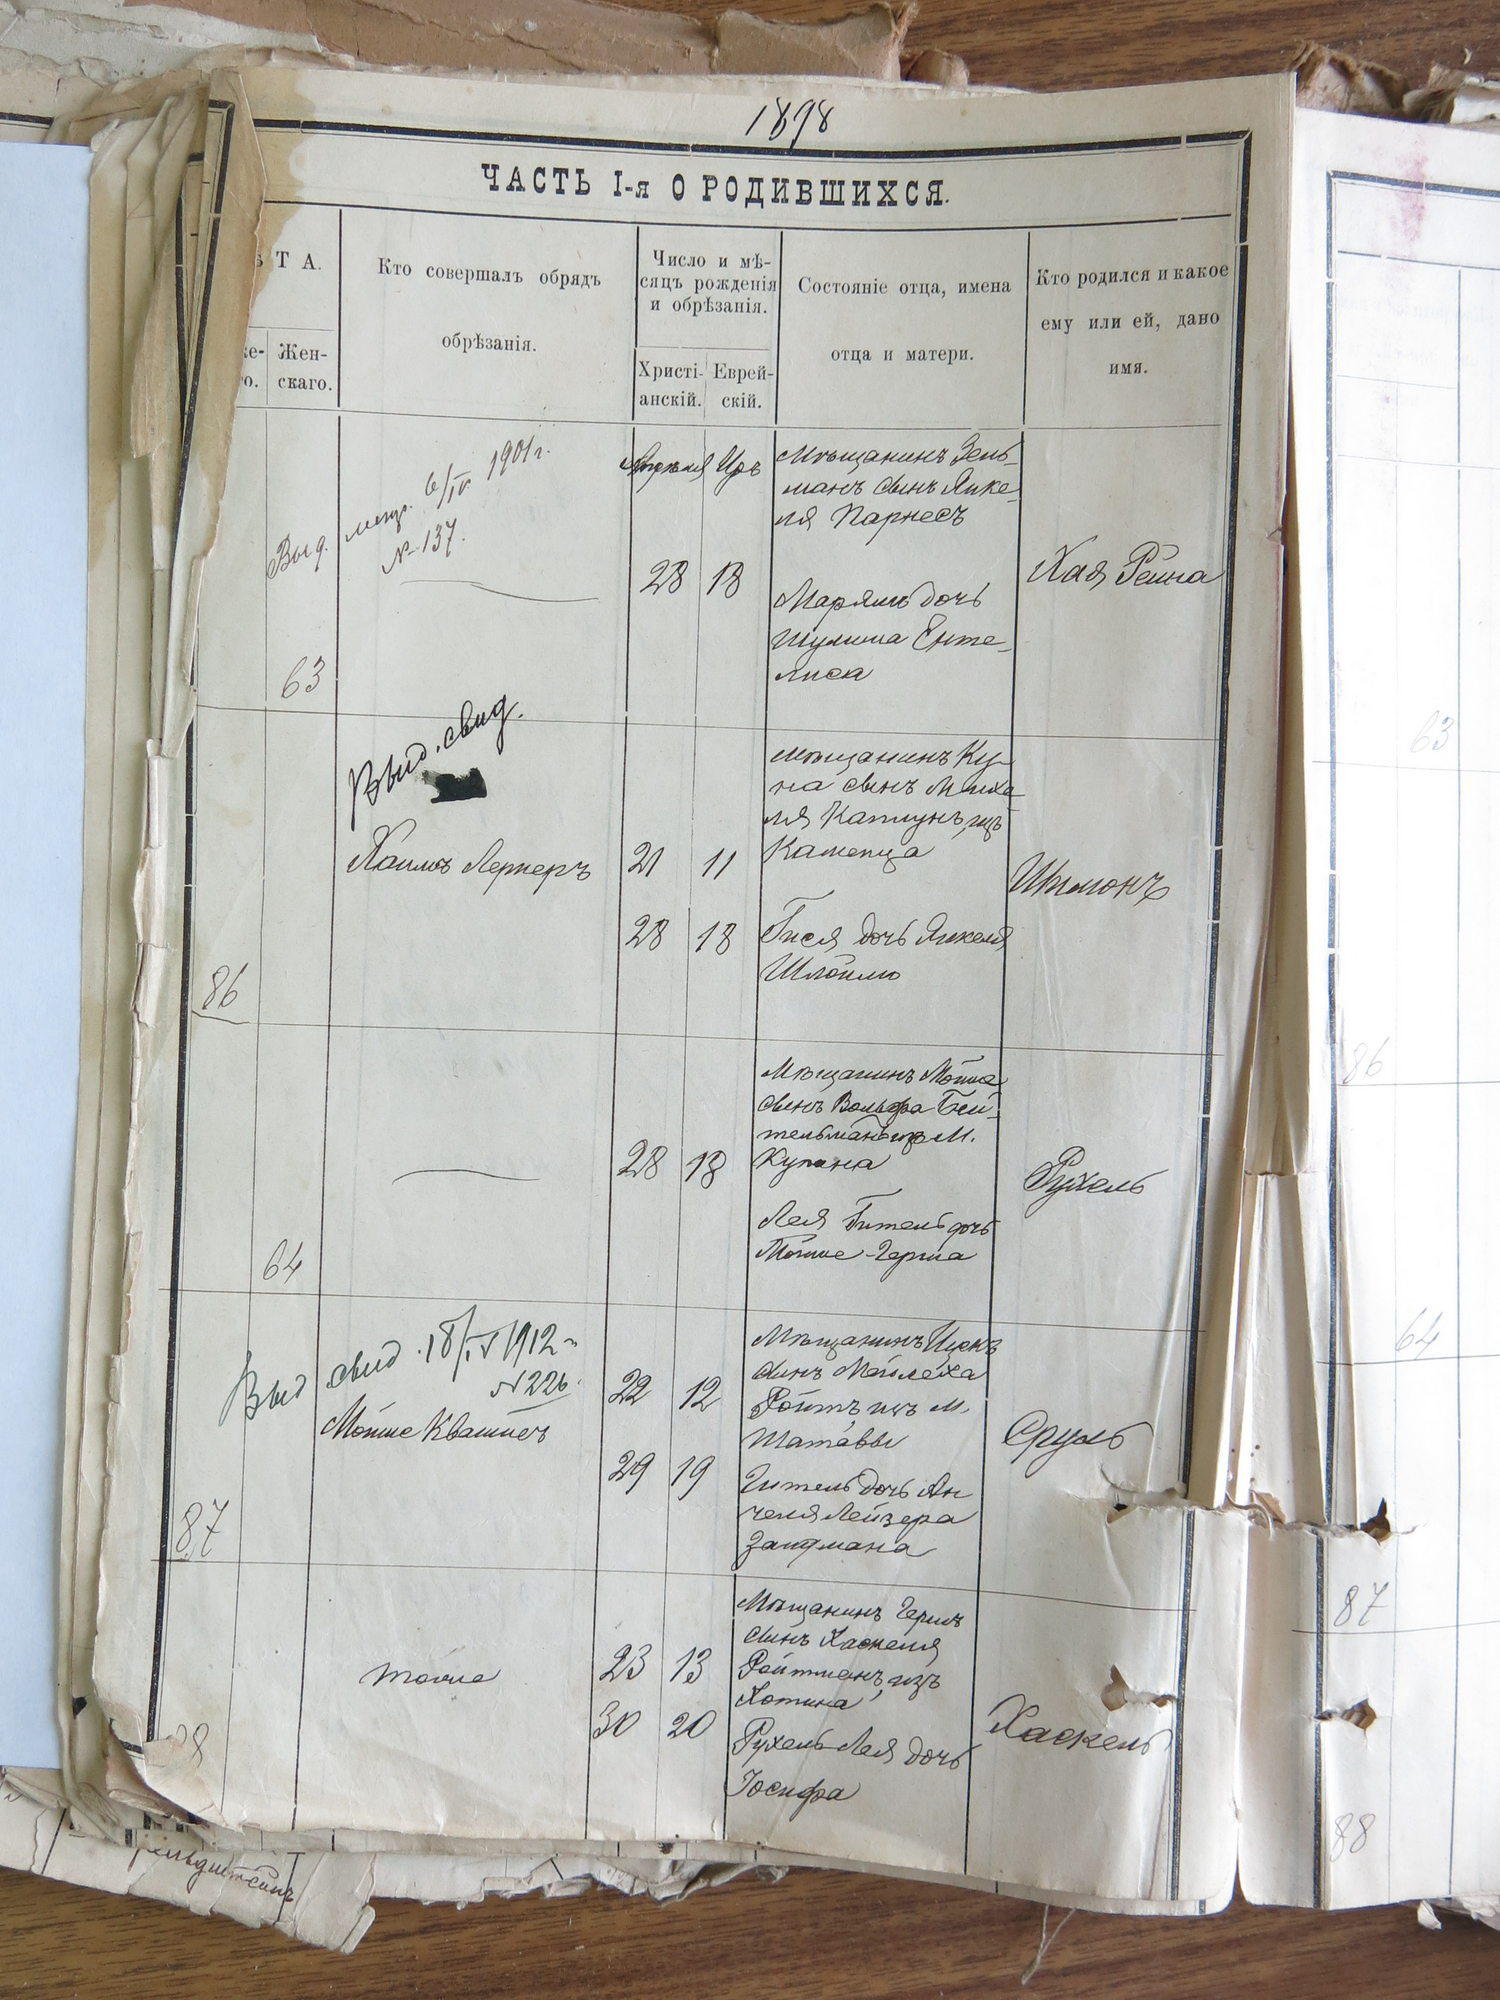 1898
ЧАСТЬ I-я О РОДИВШИХСЯ.
Т А.
Жен-
скаго.
Кто совершалъ обрядъ
обрѣзанія.
Число и мѣ-
сяцъ рожденія
и обрѣзанія.
Христі-
анскій.
Еврей-
скій.
Состояніе отца, имена
отца и матери.
Кто родился и какое
ему или ей, дано
имя.
Выд. 6/IV 1901 г.
№ 137.
63
Апреля Иръ
28 18
Мѣщанинъ Зель-
манъ сынъ Янке-
ля Парнесъ
Марямъ дочь
Шулима Енте-
лиса
Хая Рейна
Выд. свид.
Хаимъ Лернеръ
86
21 11
28 18
Мѣщанинъ Ку-
на сынъ Михе
ля Каплунъ, изъ
Каменца
Гися дочь Янкеля
Шлоймо
Шимонъ
64
28 18
Мѣщанинъ Мойше
сынъ Вольфа Бей-
тельманъ изъ М.
Купина
Лея Гитель дочь
Мойше-Герша
Рухель
Выд свид. 18/IV 1912 г
№ 226.
Мойше Квашнеъ
87
22 12
29 19
Мѣщанинъ Ицекъ
сынъ Мойлеха
Ройтъ изъ М.
Шатавы
Гитель дочь Ан
челя Лейзера
Зайдмана
Сруль
Тоже
88
23 13
30 20
Мѣщанинъ Гершъ
сынъ Хаскеля
Ройтманъ, изъ
Хотина
Рухель-Лея дочь
Іосифа
Хаскель
63
86
64
87
88